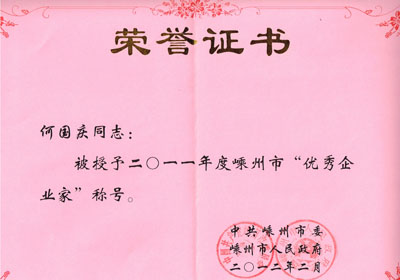 荣誉证书
何国庆同志：
被授予二〇一一年度嵊州市“优秀企
业家”称号。
中共嵊州市委
嵊州市人民政府
二〇一二年二月